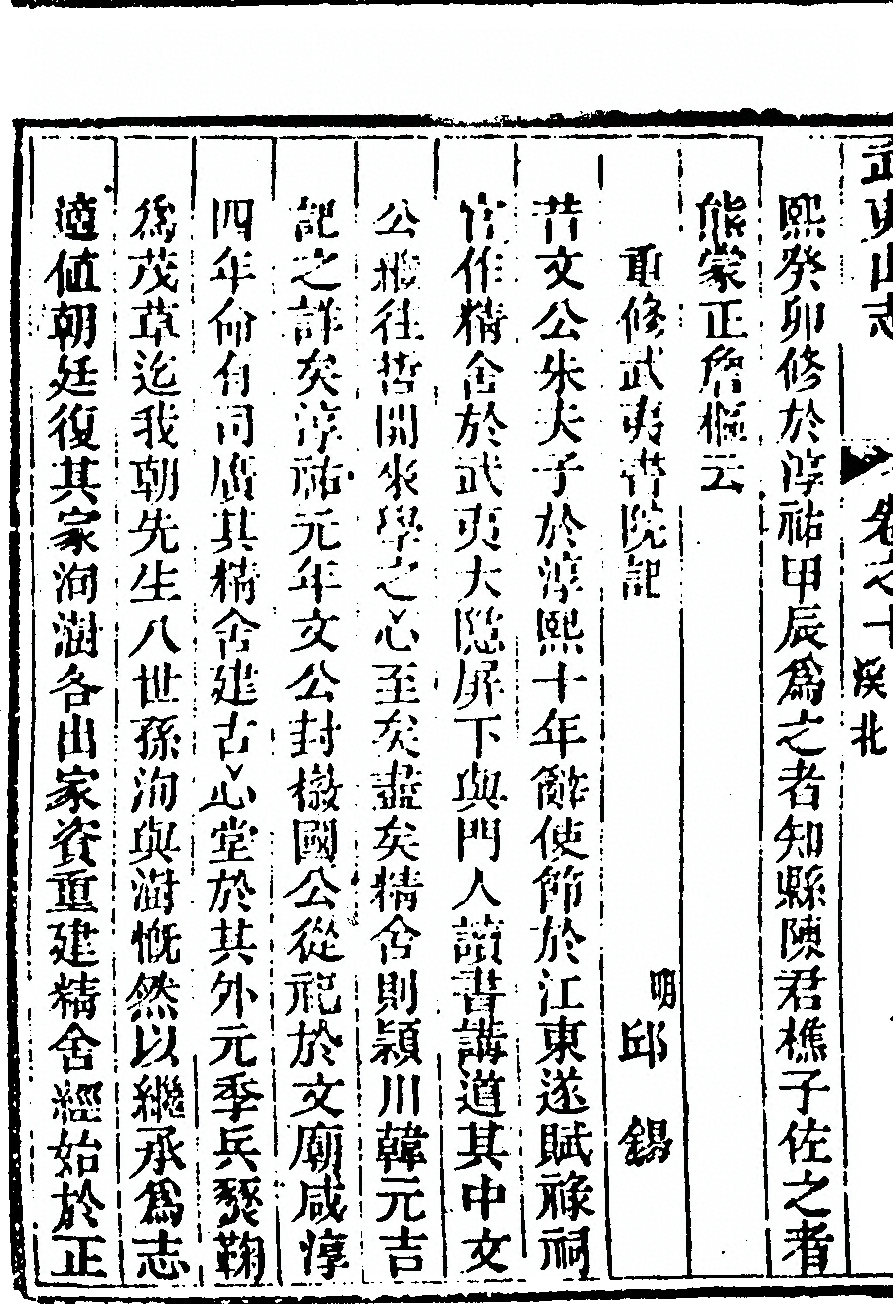 武夷山志 卷之十 溪北
熙癸卯修於淳祐甲辰爲之者知縣陳君樵子佐之者
熊蒙正詹樞云
重修武夷書院記 明 邱錫
昔文公朱夫子於淳熙十年辭使節於江東遂賦祿祠
官作精舍於武夷大隱屏下與門人讀書講道其中文
公繼往哲開來學之心至矣盡矣精舍則潁川韓元吉
記之詳矣淳祐元年文公封徽國公從祀於文廟咸淳
四年命有司廣其精舍建古心堂於其外元季兵燹鞠
爲茂草迄我朝先生八世孫洵與澍慨然以繼承爲志
適値朝廷復其家洵澍各出家資重建精舍經始於正